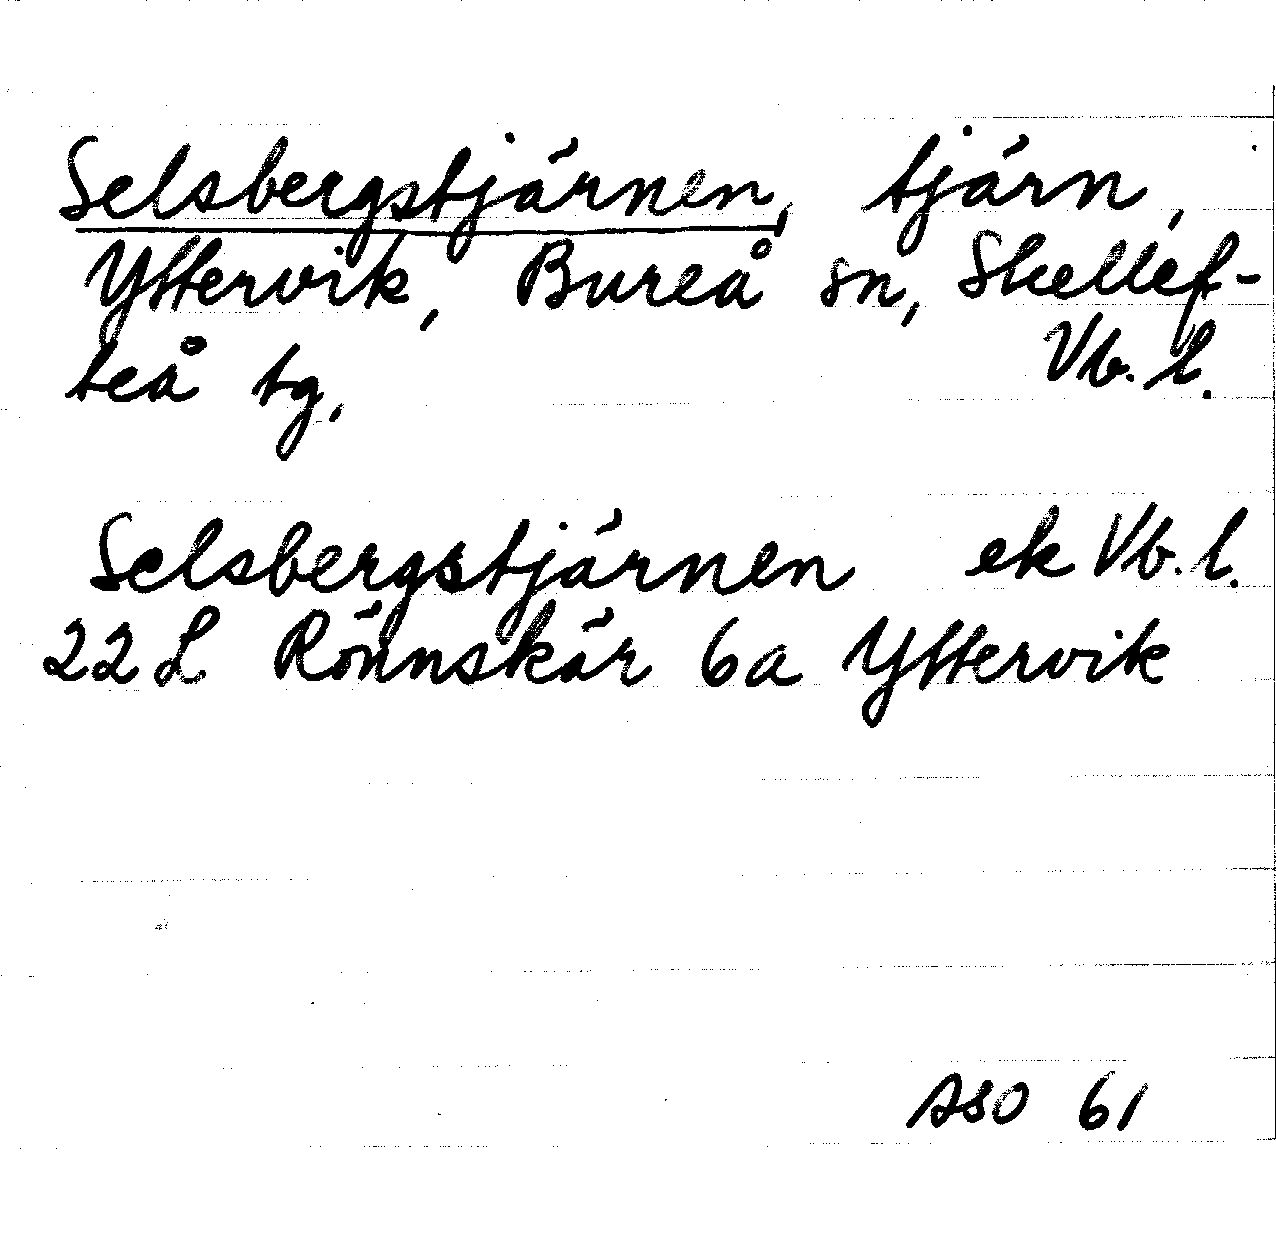 Selsbergstjärnen, tjärn,
Yttervik, Bureå sn, Skellef-
teå tg, Vb. l.
Selsbergstjärnen ek Vb. l.
22 L Rönnskär 6a Yttervik
ASO 61